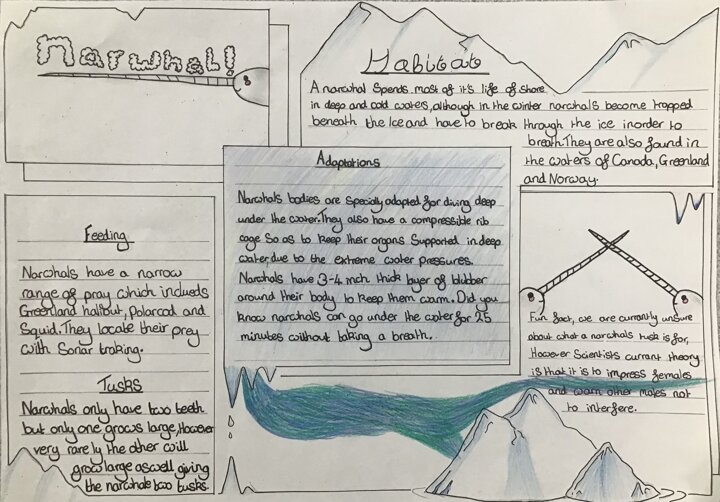 Narwhal!
Habitat
A narwhal spends most of it's life of shore
in deep and cold waters, although in the winter narwhals become trapped
beneath the Ice and have to break through the ice inorder to
breath. They are also found in
the waters of Canada, Greenland
and Norway.
Adaptations
Narwhals bodies are specially adapted for diving deep
under the water. They also have a compressible rib
cage so as to keep their organs supported in deep
water, due to the extreme water pressures.
Narwhals have 3-4 inch thick layer of blubber
around their body to keep them warm. Did you
know narwhals can go under the water for 25
minutes without taking a breath.
Feeding
Narwhals have a narrow
range of pray which inclueds
Greenland halibut, Polarcod and
Squid. They locate their prey
with Sonar traking.
Tusks
Narwhals only have two teeth
but only one grows large, However
very rarely the other will
grow large aswell giving
the narwhale two tusks.
Fun fact, we are currantly unsure
about what a narwhals tusk is for,
However Scientists currant theory
is that it is to impress females
and warn other males not
to interfere.